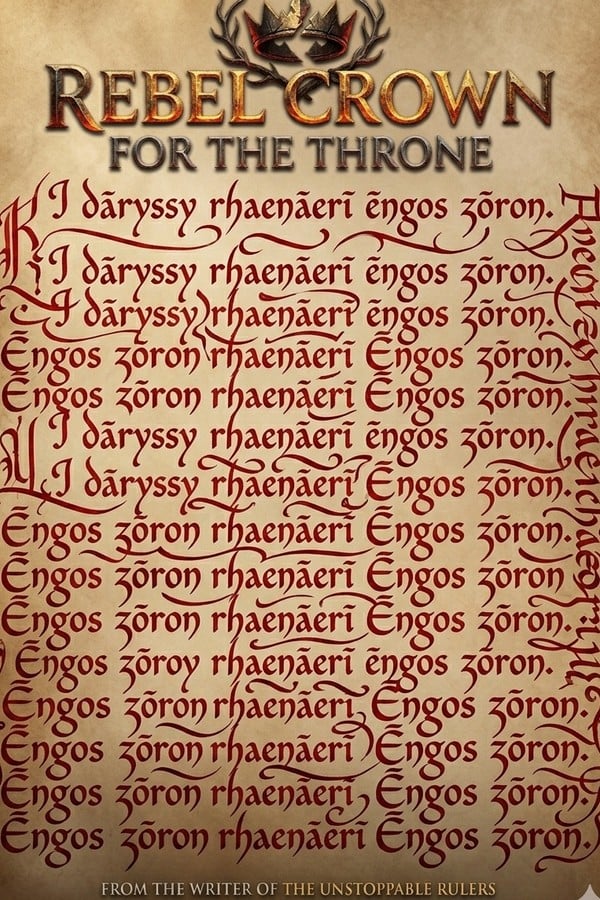 REBEL CROWN
FOR THE THRONE
I dāryssy rhaenāerī ēngos zōron.
I dāryssy rhaenāerī ēngos zōron.
I dāryssy rhaenāerī ēngos zōron.
Ēngos zōron rhaenāerī Ēngos zōron.
Ēngos zōron rhaenāerī Ēngos zōron.
I dāryssy rhaenāerī ēngos zōron.
I dāryssy rhaenāerī Ēngos zōron.
Ēngos zōron rhaenāerī Ēngos zōron.
Ēngos zōron rhaenāerī Ēngos zōron
Ēngos zōron rhaenāerī Ēngos zōron.
Ēngos zōroy rhaenāerī ēngos zōron.
Ēngos zōron rhaenāerī Ēngos zōron.
Ēngos zōron rhaenāerī Ēngos zōron.
Ēngos zōron rhaenāerī Ēngos zōron.
Ēngos zōron rhaenāerī Ēngos zōron.
FROM THE WRITER OF THE UNSTOPPABLE RULERS